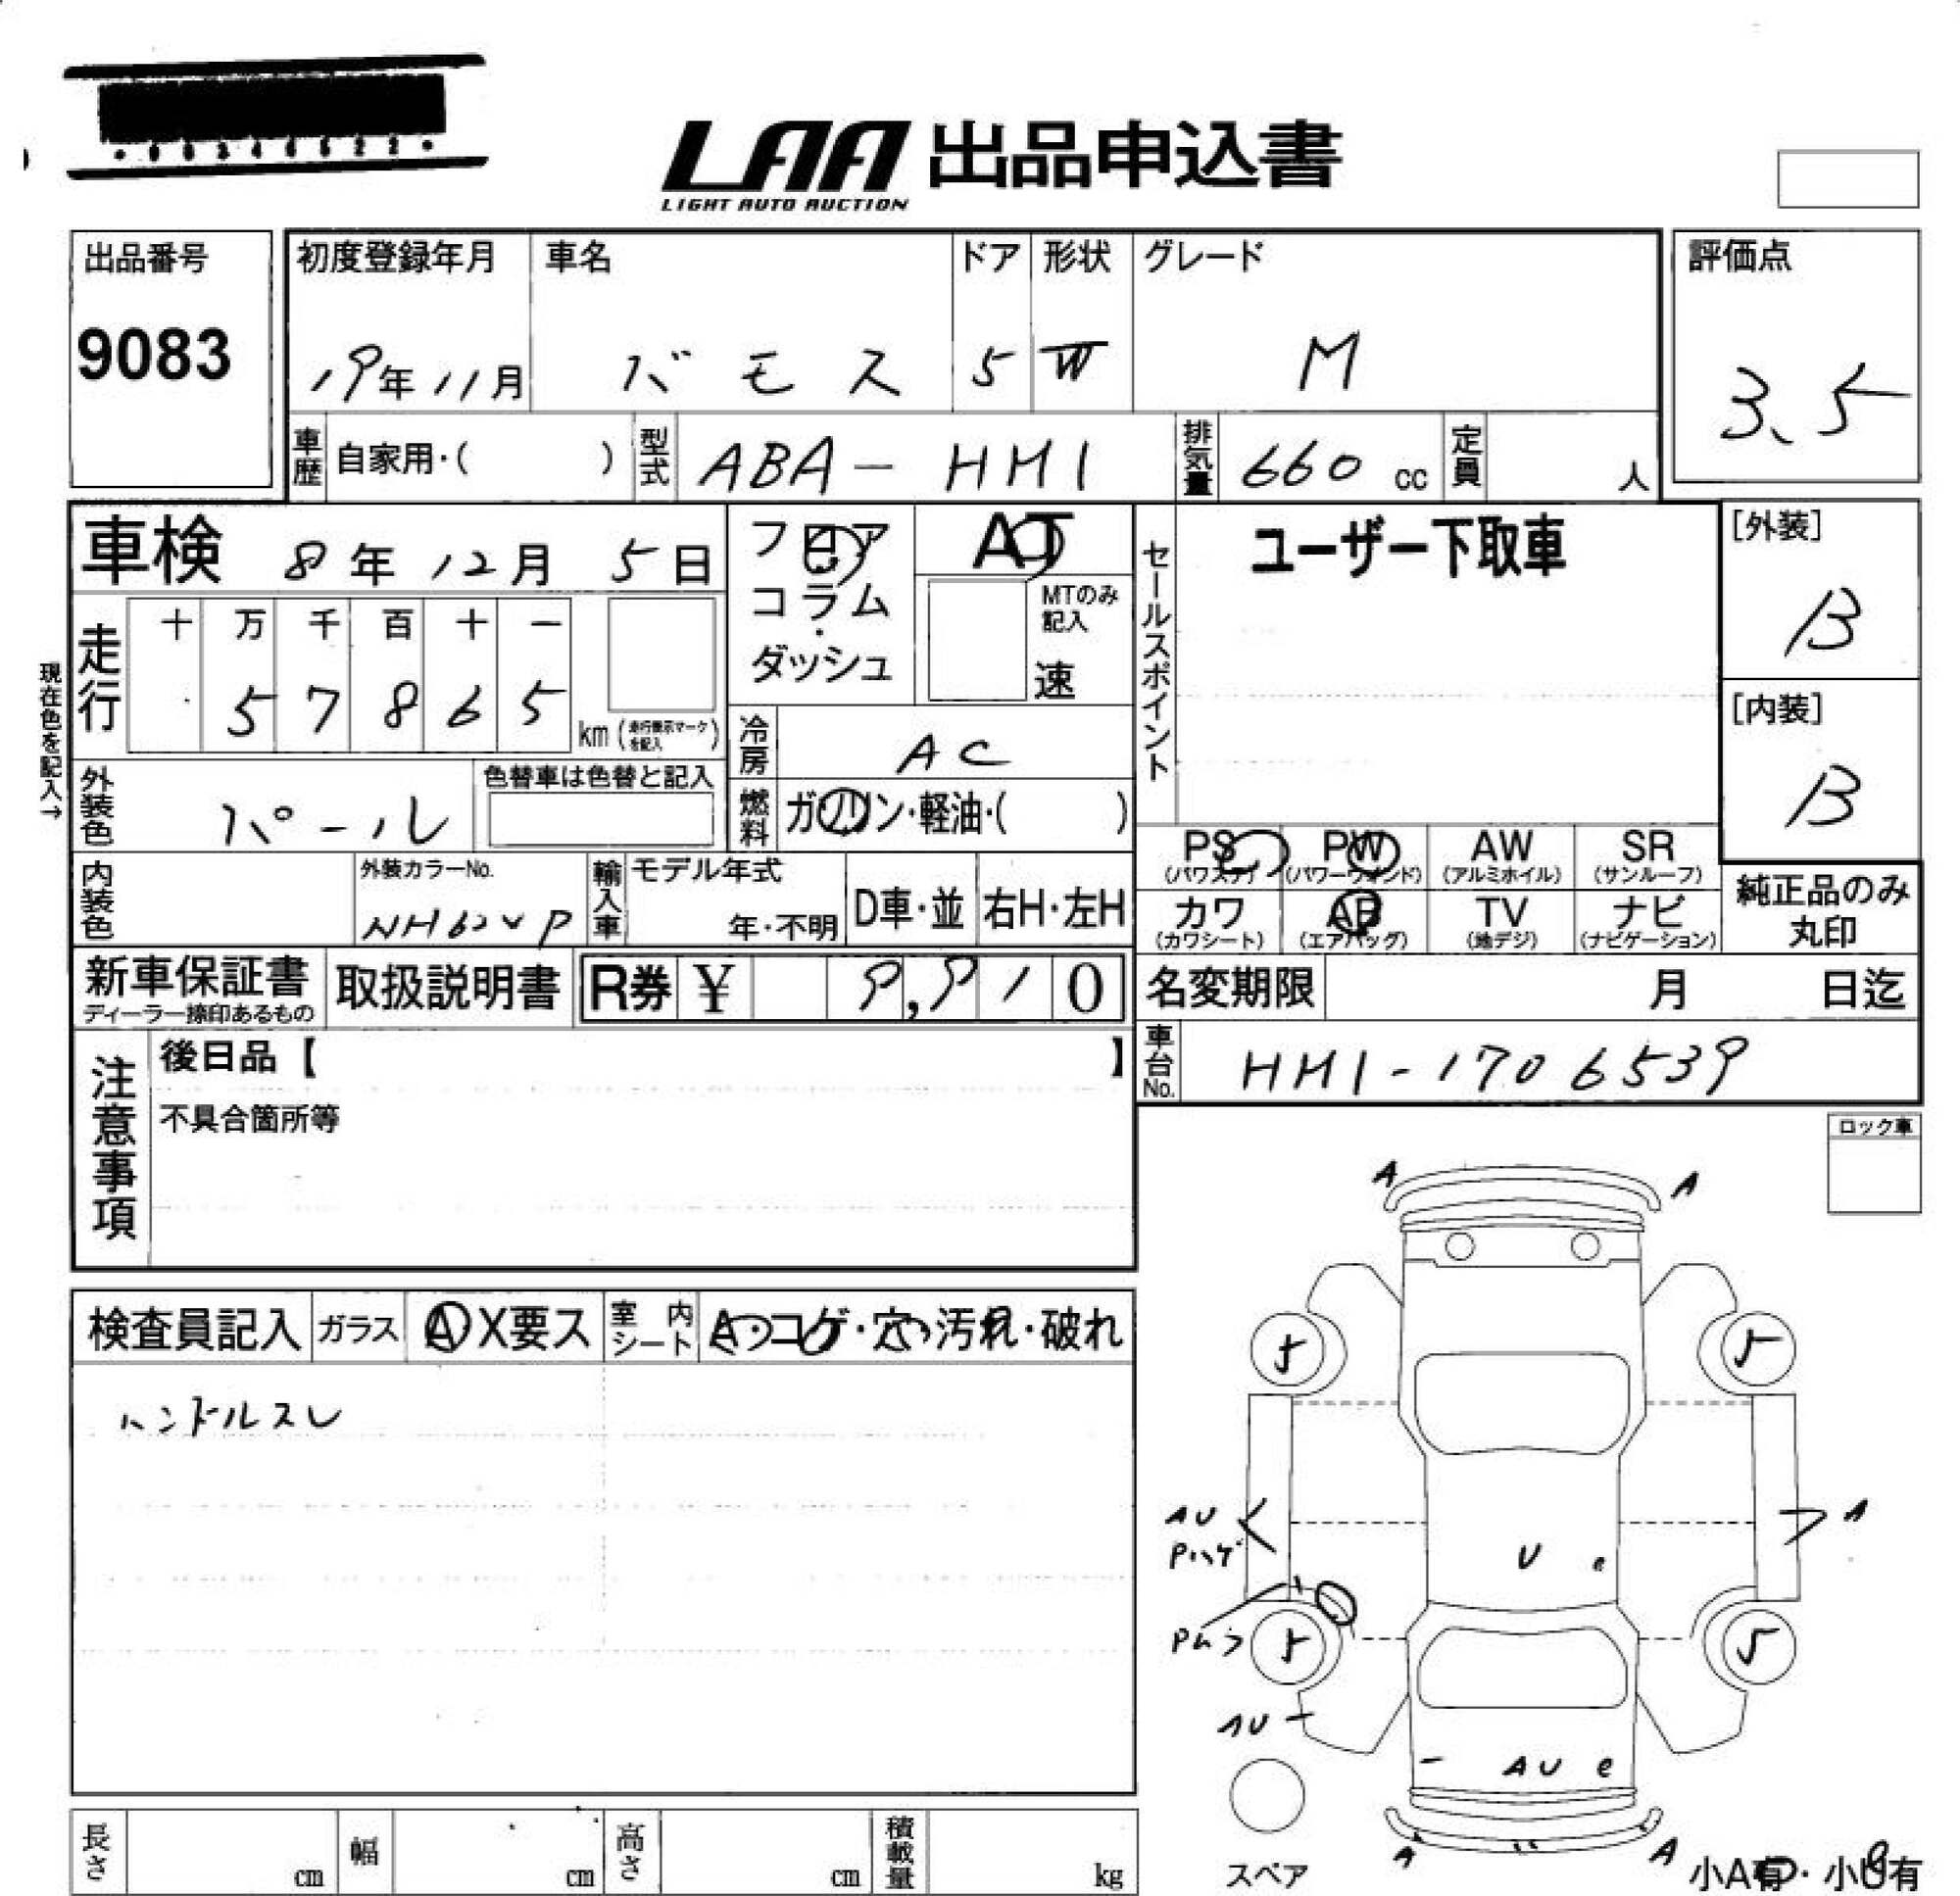 LAA 出品申込書
LIGHT AUTO AUCTION
出品番号
9083
初度登録年月
19年11月
車名
バモス
ドア
5
形状
W
グレード
M
評価点
3.5
車歴
自家用・( )
型式
ABA-HM1
排気量
660cc
定員
人
車検 8年12月5日
フロア
コラム
・
ダッシュ
AT
MTのみ
記入
速
セールスポイント
ユーザー下取車
[外装]
B
[内装]
B
現在色を記入→
走行
十 万 千 百 十 一
5 7 8 6 5
km (走行表示マークを記入)
冷房
AC
外装色
パール
色替車は色替と記入
燃料
ガソリン・軽油・( )
PS
(パワステ)
PW
(パワーウィンド)
AW
(アルミホイル)
SR
(サンルーフ)
内装色
外装カラーNo.
輸入車
モデル年式
年・不明
D車・並
右H・左H
カワ
(カワシート)
AB
(エアバッグ)
TV
(地デジ)
ナビ
(ナビゲーション)
純正品のみ
丸印
新車保証書
ディーラー捺印あるもの
取扱説明書
R券 ¥ 9,910
名変期限
月 日迄
車台No.
HM1-1706539
注意事項
後日品【 】
不具合箇所等
ロック車
検査員記入
ガラス
A X要ス
室内シート
A・コゲ・穴・汚れ・破れ
ハンドルスレ
A A
5 5
AU
Pハゲ
A
U e
Pムラ
5 5
AU
AU e
A A
スペア
小A有・小U有
長さ
cm
幅
cm
高さ
cm
積載量
kg